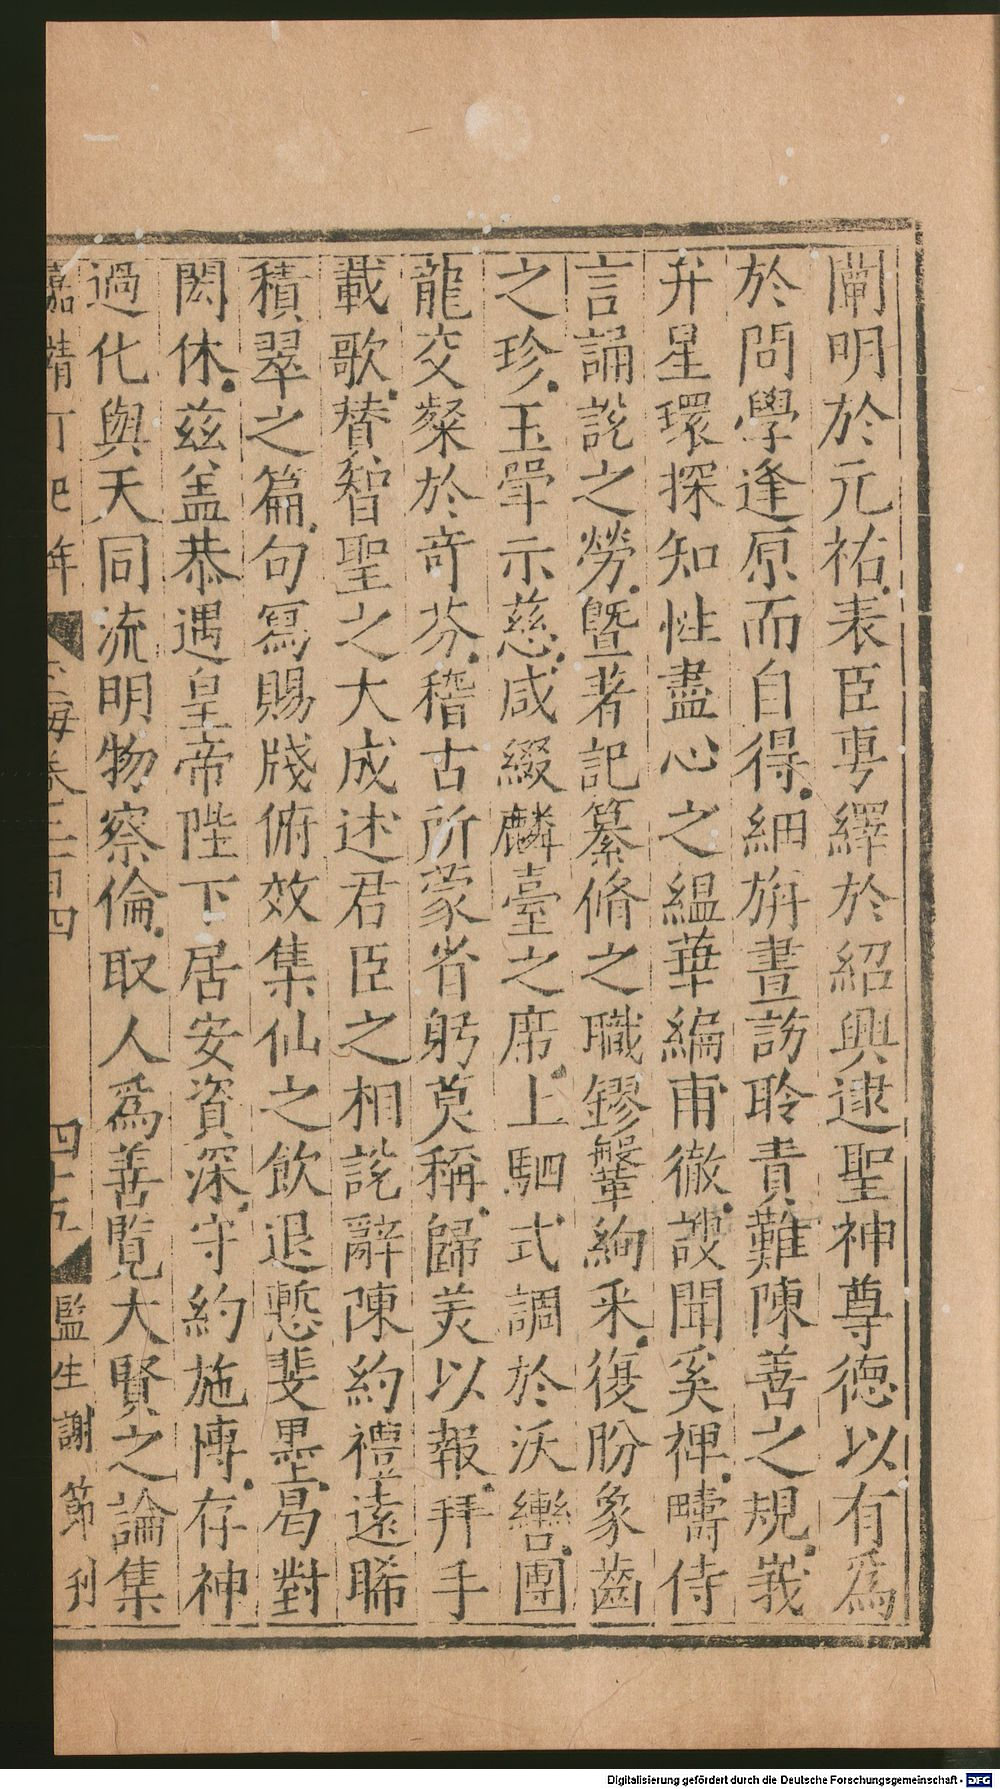 闡明於元祐表臣專繹於紹興逮聖神尊德以有爲
於問學逢原而自得細旃晝訪聆責難陳善之規峩
弁星環探知性盡心之緼華編甫徹謏聞奚裨疇侍
言誦說之勞曁著記纂脩之職鏐鞶絢采復盼象齒
之珍玉斝示慈咸綴麟臺之席上駟式調於沃轡團
龍交粲於竒芬稽古所蒙省躬莫稱歸美以報拜手
載歌賛智聖之大成述君臣之相說辭陳約禮遠睎
積翠之篇句冩賜牋俯效集仙之飲退慙斐墨曷對
閎休茲盖恭遇皇帝陛下居安資深守約施博存神
過化與天同流明物察倫取人爲善覽大賢之論集
嘉靖丁巳年 玉海卷二百四 四十五 監生謝節刋
Digitalisierung gefördert durch die Deutsche Forschungsgemeinschaft - DFG